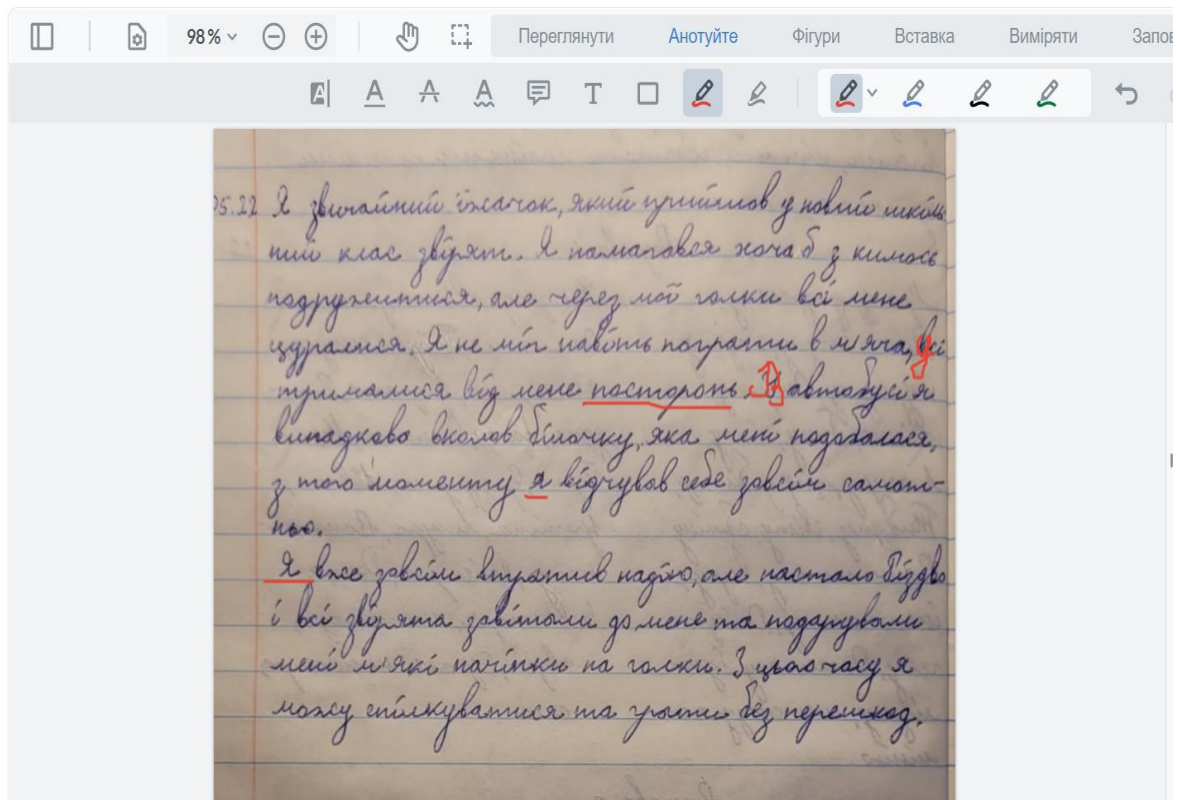 98%
Переглянути Анотуйте Фігури Вставка Виміряти Запов
05.22 Я звичайний їжачок, який прийшов у новий шкіль-
ний клас звірят. Я намагався хоча б з кимось
подружитися, але через мої голки всі мене
цуралися. Я не міг навіть пограти в м'яча, всі
трималися від мене посторонь. У автобусі я
випадково вколов білочку, яка мені подобалася,
з того моменту я відчував себе зовсім самот-
ньо.
Я вже зовсім втратив надію, але настало Різдво
і всі звірята завітали до мене та подарували
мені м'які начіпки на голки. З цього часу я
можу спілкуватися та грати без перешкод.